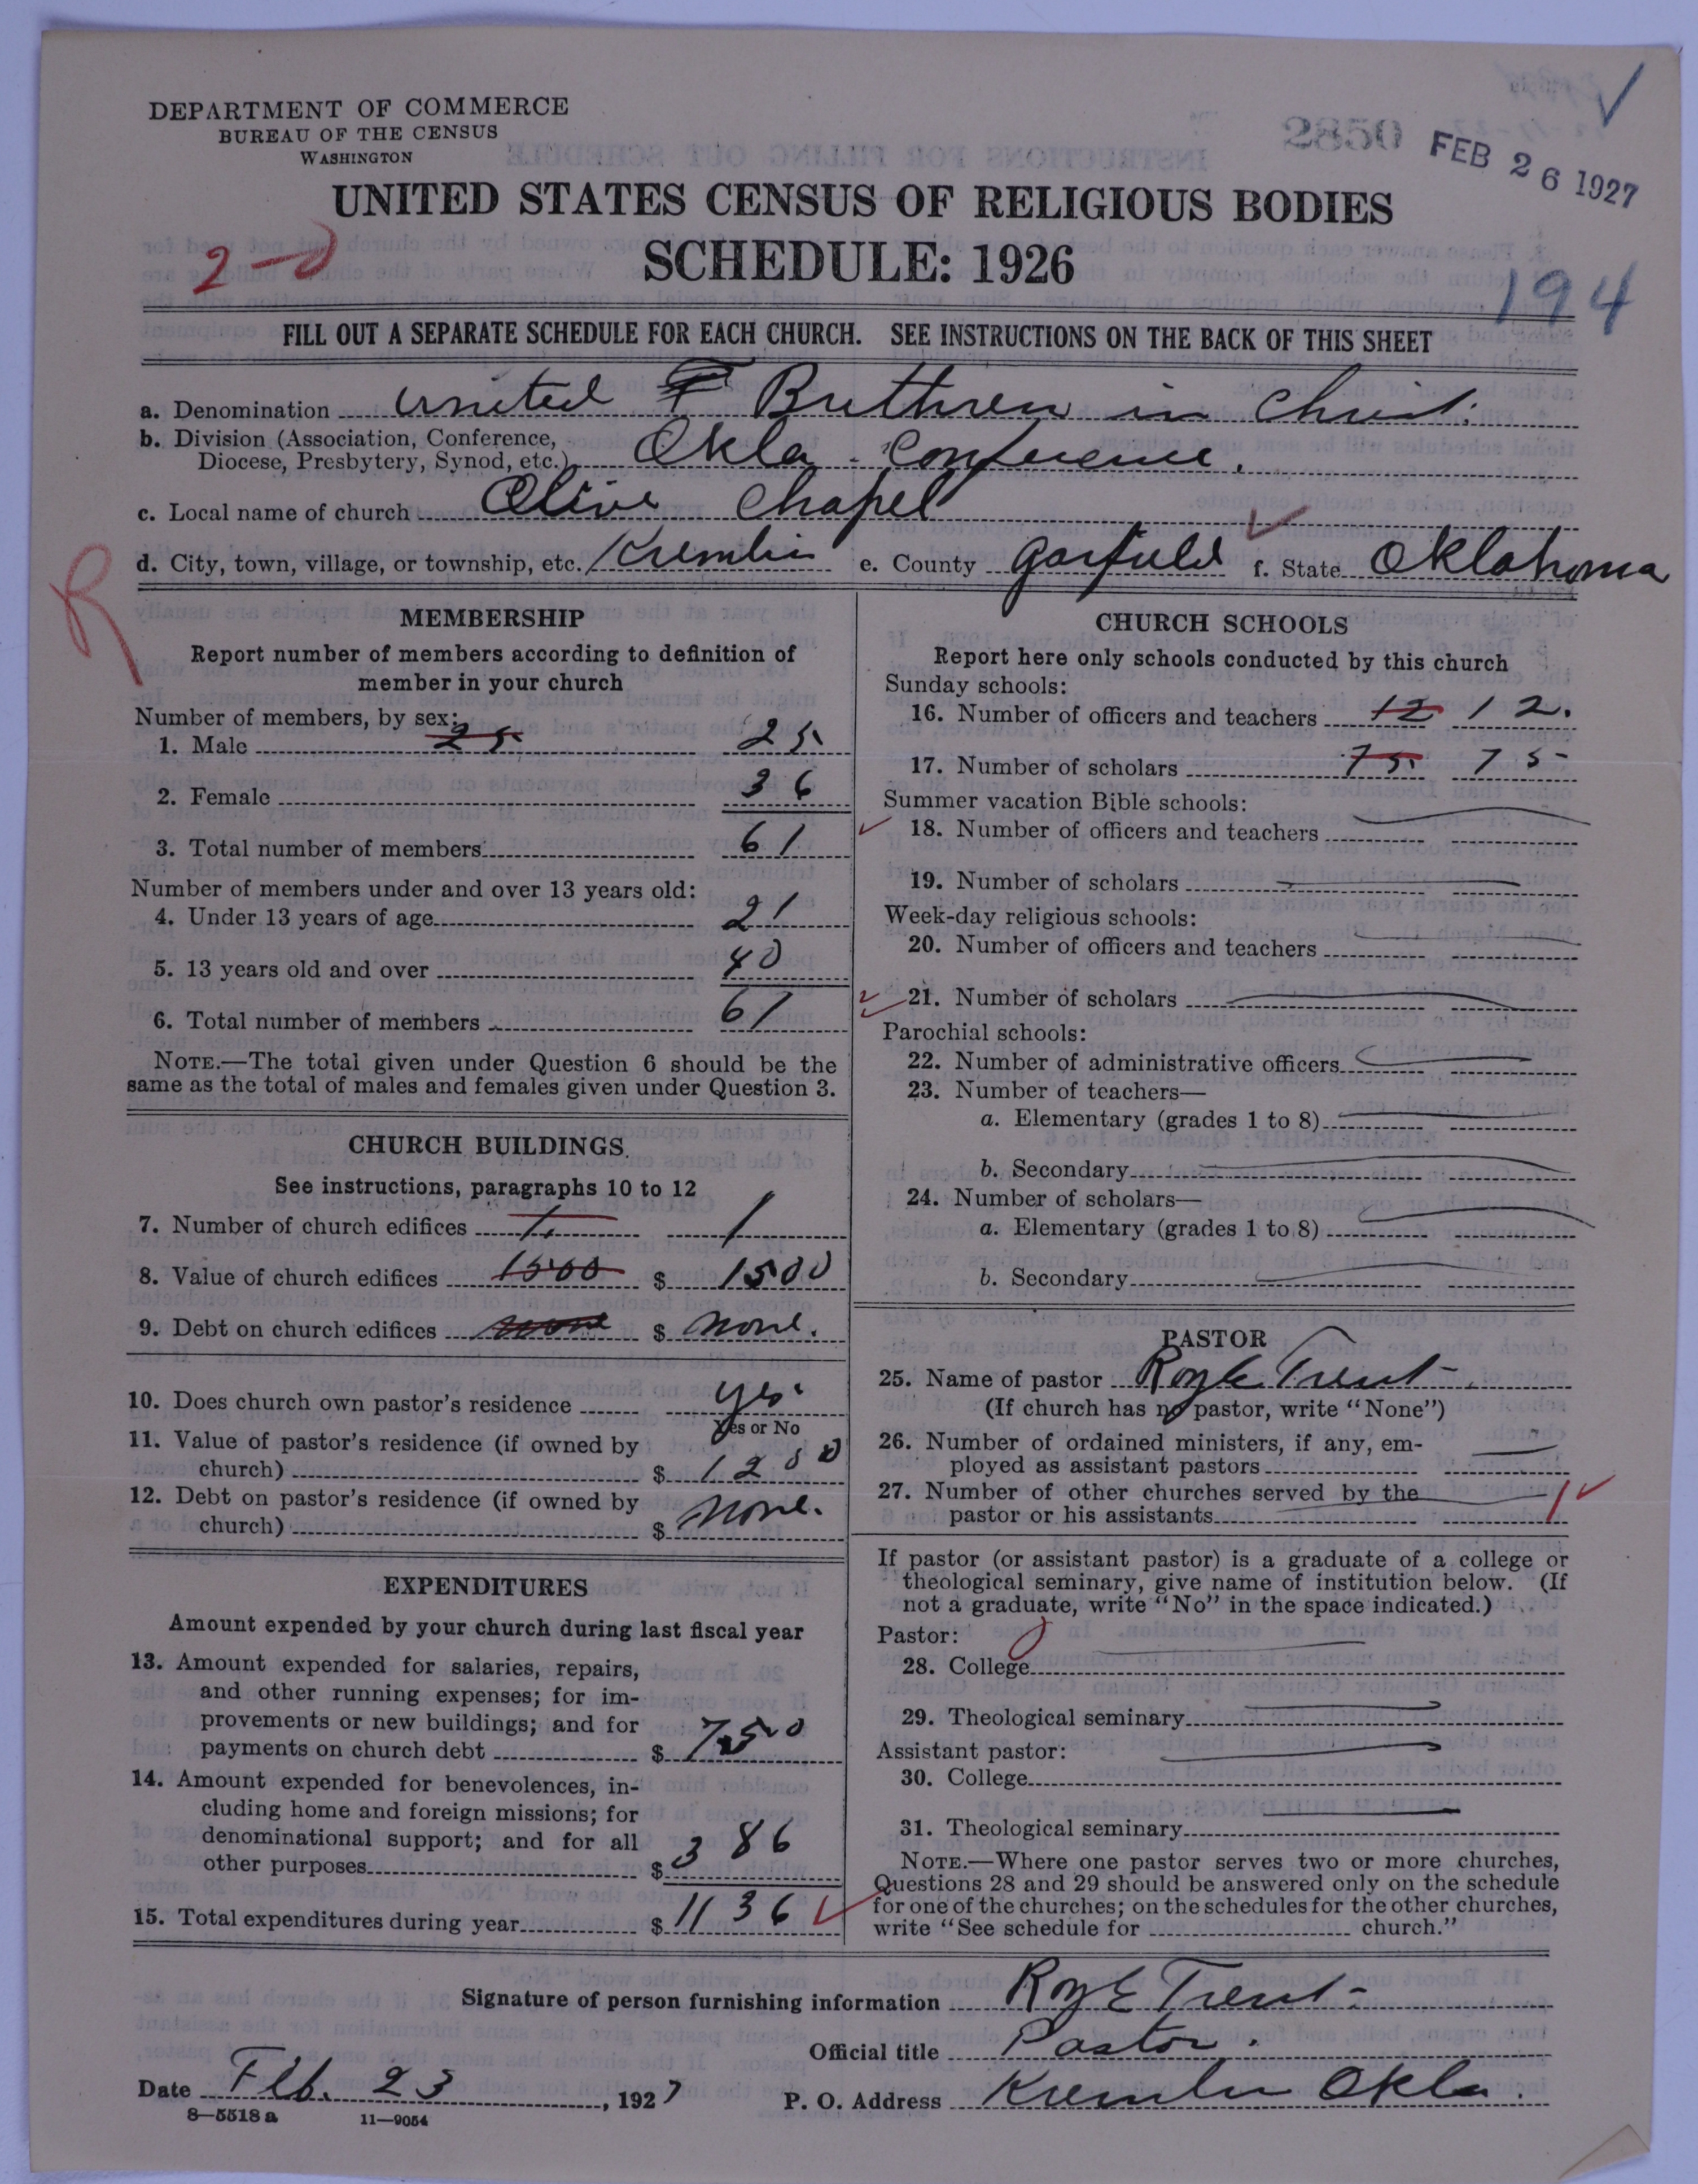 DEPARTMENT OF COMMERCE
BUREAU OF THE CENSUS
WASHINGTON
2850
FEB 26 1927
UNITED STATES CENSUS OF RELIGIOUS BODIES
SCHEDULE: 1926
194
FILL OUT A SEPARATE SCHEDULE FOR EACH CHURCH. SEE INSTRUCTIONS ON THE BACK OF THIS SHEET
a. Denomination United Brethren in Christ.
b. Division (Association, Conference,
Diocese, Presbytery, Synod, etc.) Okla. Conference.
c. Local name of church Olive Chapel
d. City, town, village, or township, etc. Kremlin e. County Garfield f. State Oklahoma
R
MEMBERSHIP
Report number of members according to definition of
member in your church
Number of members, by sex:
1. Male 25 25
2. Female 36
3. Total number of members 61
Number of members under and over 13 years old:
4. Under 13 years of age 21
5. 13 years old and over 40
6. Total number of members 61
NOTE.—The total given under Question 6 should be the
same as the total of males and females given under Question 3.
CHURCH BUILDINGS
See instructions, paragraphs 10 to 12
7. Number of church edifices 1 1
8. Value of church edifices 1500 $ 1500
9. Debt on church edifices none $ none.
10. Does church own pastor's residence yes.
Yes or No
11. Value of pastor's residence (if owned by
church) $ 1200
12. Debt on pastor's residence (if owned by
church) $ none.
EXPENDITURES
Amount expended by your church during last fiscal year
13. Amount expended for salaries, repairs,
and other running expenses; for im-
provements or new buildings; and for
payments on church debt $ 750
14. Amount expended for benevolences, in-
cluding home and foreign missions; for
denominational support; and for all
other purposes $ 386
15. Total expenditures during year $ 1136
CHURCH SCHOOLS
Report here only schools conducted by this church
Sunday schools:
16. Number of officers and teachers 12 12.
17. Number of scholars 75 75
Summer vacation Bible schools:
18. Number of officers and teachers
19. Number of scholars
Week-day religious schools:
20. Number of officers and teachers
21. Number of scholars
Parochial schools:
22. Number of administrative officers
23. Number of teachers—
a. Elementary (grades 1 to 8)
b. Secondary
24. Number of scholars—
a. Elementary (grades 1 to 8)
b. Secondary
PASTOR
25. Name of pastor Roy E Trent
(If church has no pastor, write "None")
26. Number of ordained ministers, if any, em-
ployed as assistant pastors
27. Number of other churches served by the
pastor or his assistants 1
If pastor (or assistant pastor) is a graduate of a college or
theological seminary, give name of institution below. (If
not a graduate, write "No" in the space indicated.)
Pastor:
28. College
29. Theological seminary
Assistant pastor:
30. College
31. Theological seminary
NOTE.—Where one pastor serves two or more churches,
Questions 28 and 29 should be answered only on the schedule
for one of the churches; on the schedules for the other churches,
write "See schedule for church."
Signature of person furnishing information Roy E Trent
Official title Pastor.
Date Feb. 23, 1927 P. O. Address Kremlin Okla.
8—5518 a 11—9054